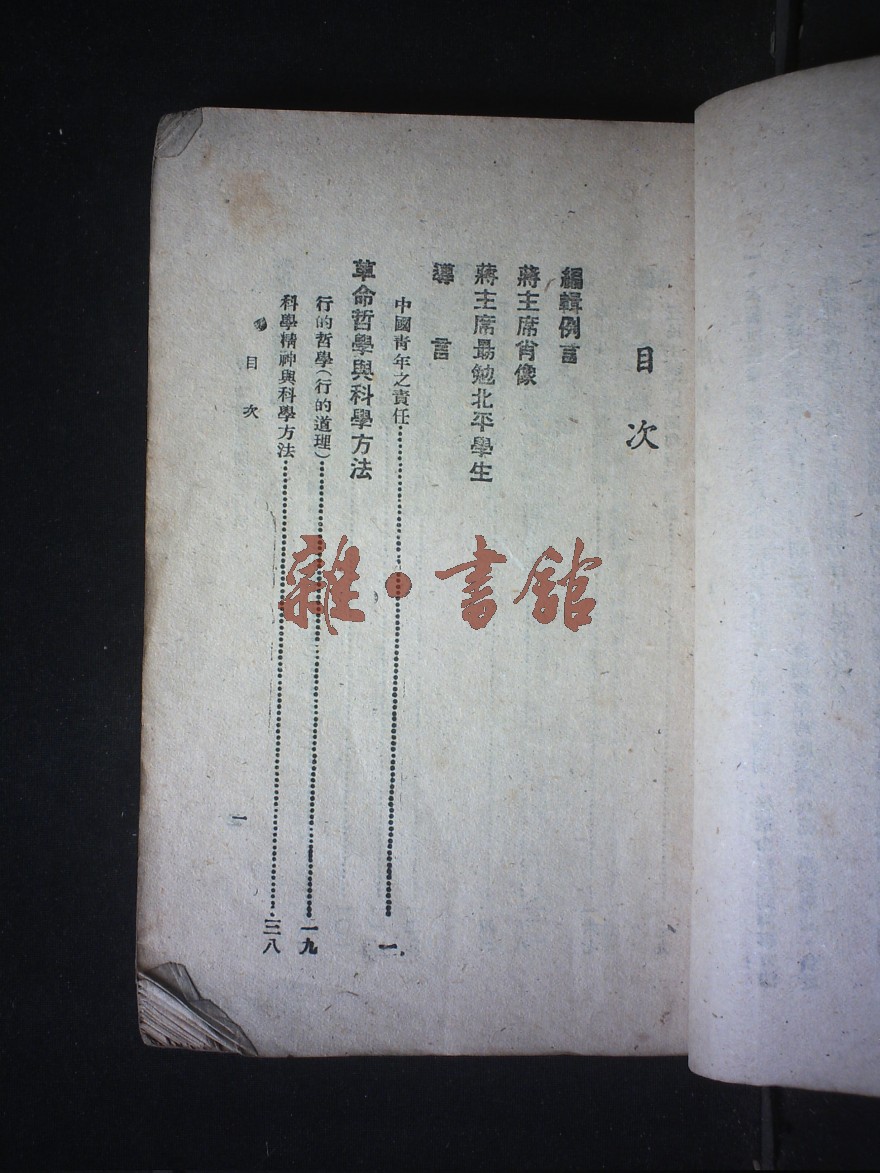 目次
編輯例言
蔣主席肖像
蔣主席勗勉北平學生
導言
中國青年之責任……一
革命哲學與科學方法
行的哲學(行的道理)……一九
科學精神與科學方法……三八
目次
一
雜·書館